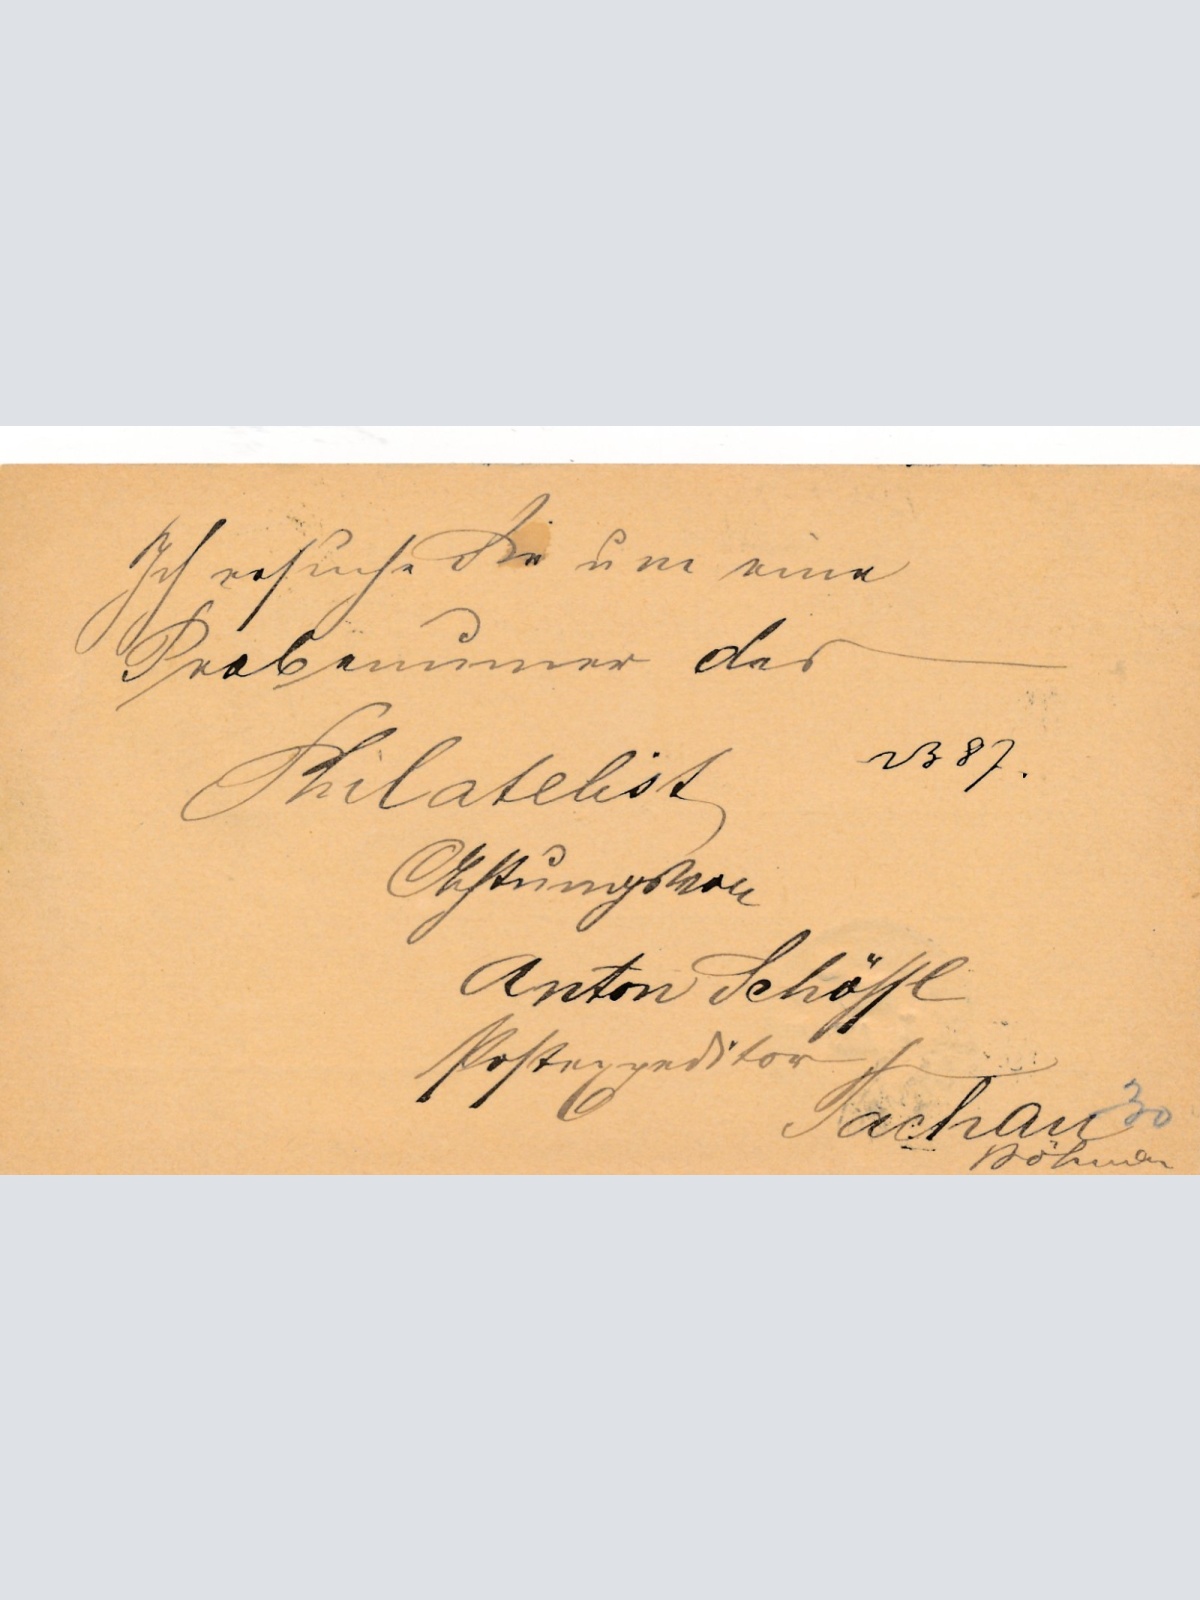 Ich ersuche Sie um eine
Probenummer des
Philatelist
87.
Achtungsvoll
Anton Schöffl
Postexpeditor
Tachau 30
Böhmen